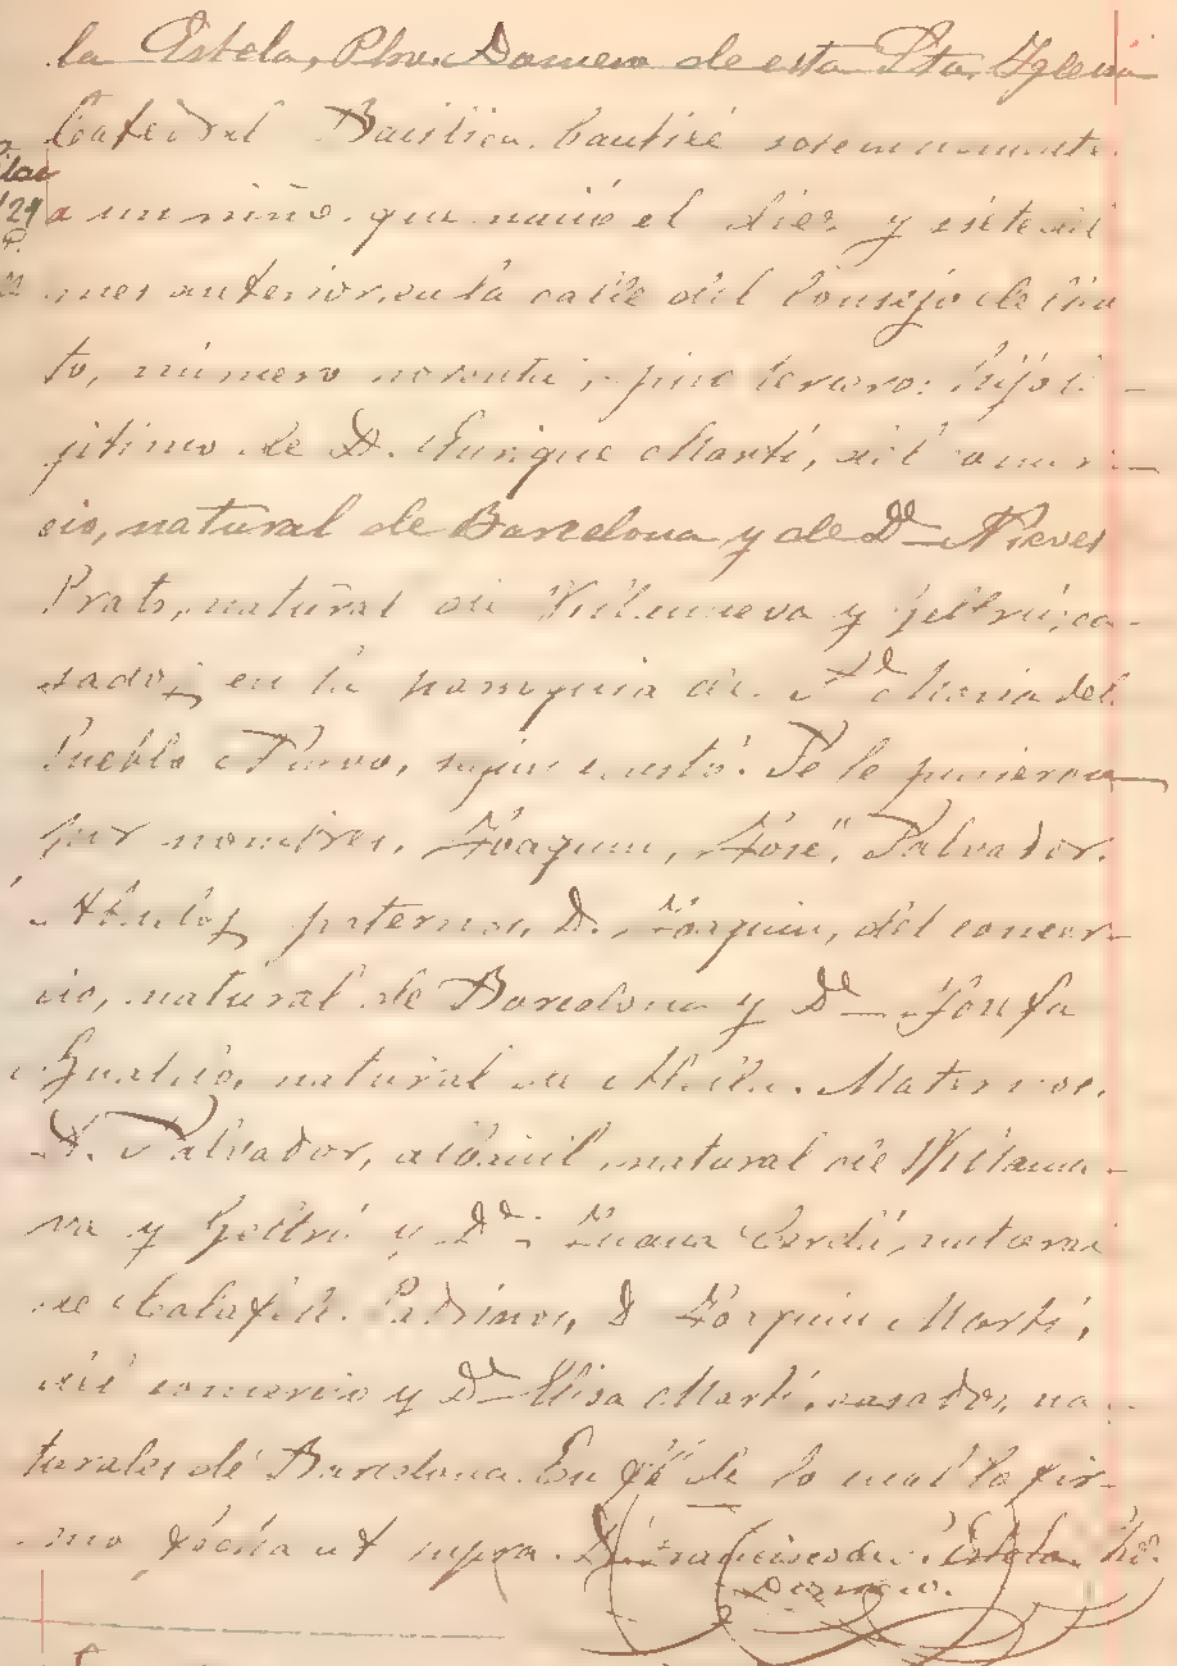 la Estela, Pbro. Domero de esta Sta. Iglesia
Catedral Basílica, bauticé solemnemente
a un niño que nació el diez y siete del
mes anterior, en la calle del Consejo de Cien
to, número noventa, piso tercero: hijo le-
gítimo de D. Enrique Martí, del comer-
cio, natural de Barcelona y de Dª Nieves
Prats, natural de Villanueva y Geltrú, ca-
sados en la parroquia de Stª Maria del
Pueblo Nuevo, según consta. Se le pusieron
por nombres, Joaquin, José, Salvador.
Abuelos paternos, D. Joaquin, del comer-
cio, natural de Barcelona y Dª Josefa
natural de Maternos.
D. Salvador, albañil, natural de Villanue-
va y Geltrú y Dª Juana Cerdá, natural
de Calafell. Padrinos, D. Joaquin Martí,
del comercio y Dª Elisa Martí, casados, na-
turales de Barcelona. En fé de lo cual lo fir-
mo fecha ut supra. Francisco de Estela, Pbro.
Domero.